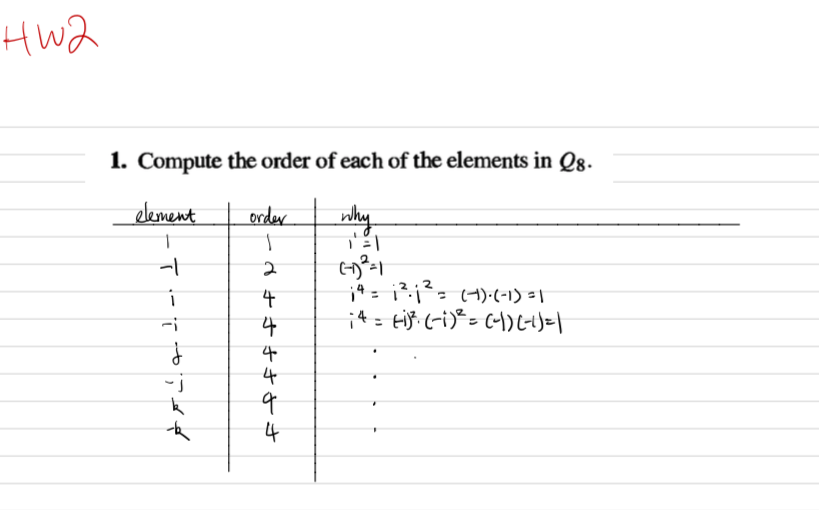 HW2
1. Compute the order of each of the elements in Q₈.
element order why
1 1 1¹=1
-1 2 (-1)²=1
i 4 i⁴ = i²·i² = (-1)·(-1) = 1
-i 4 i⁴ = (-i)²·(-i)² = (-1)(-1)=1
j 4 .
-j 4 .
k 4 .
-k 4 .